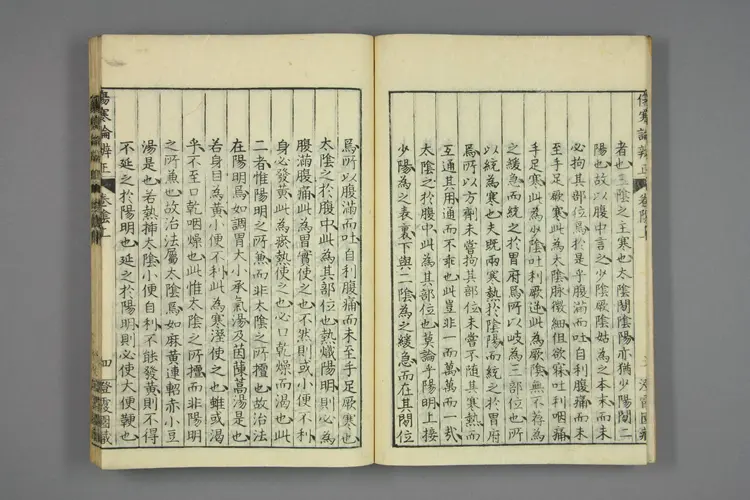 者也三陰之主寒也太陰閒陰陽亦猶少陽閒二
陽也故以腹中言之少陰厥陰姑為之本末而未
必拘其部位焉於是乎腹滿而吐自利腹痛而未
至手足厥寒此為太陰脉微細但欲寐吐利咽痛
手足寒此為少陰吐利厥逆此為厥陰無不荐為
之緩急而統之於胃府焉所以岐為三部位也所
以統為寒也夫既兩寒熱於陰陽而統之於胃府
焉所以方劑未嘗拘其部位未嘗不隨其寒熱而
互通其用通而不乖也此豈非一而萬萬而一哉
太陰之於腹中此為其部位也莫論乎陽明上接
少陽為之表裏下與二陰為之緩急而在其閒位
傷寒論辨正
焉所以腹滿而吐自利腹痛而未至手足厥寒也
太陰之於腹中此為其部位也熱熾陽明則必為
腹滿腹痛此為胃實使之也不然則或小便不利
身必發黃此為瘀熱使之也必口乾燥而渴也此
二者惟陽明之所兼而非太陰之所擅也故治法
在陽明焉如調胃大小承氣湯及茵蔯蒿湯是也
若身目為黃小便不利此為寒溼使之也雖或渴
乎不至口乾咽燥也此惟太陰之所擅而非陽明
之所兼也故治法屬太陰焉如麻黃連軺赤小豆
湯是也若熱抻太陰小便自利不能發黃則不得
不延之於陽明也延之於陽明則必使大便鞕也
傷寒論辨正
四
澄霞園藏